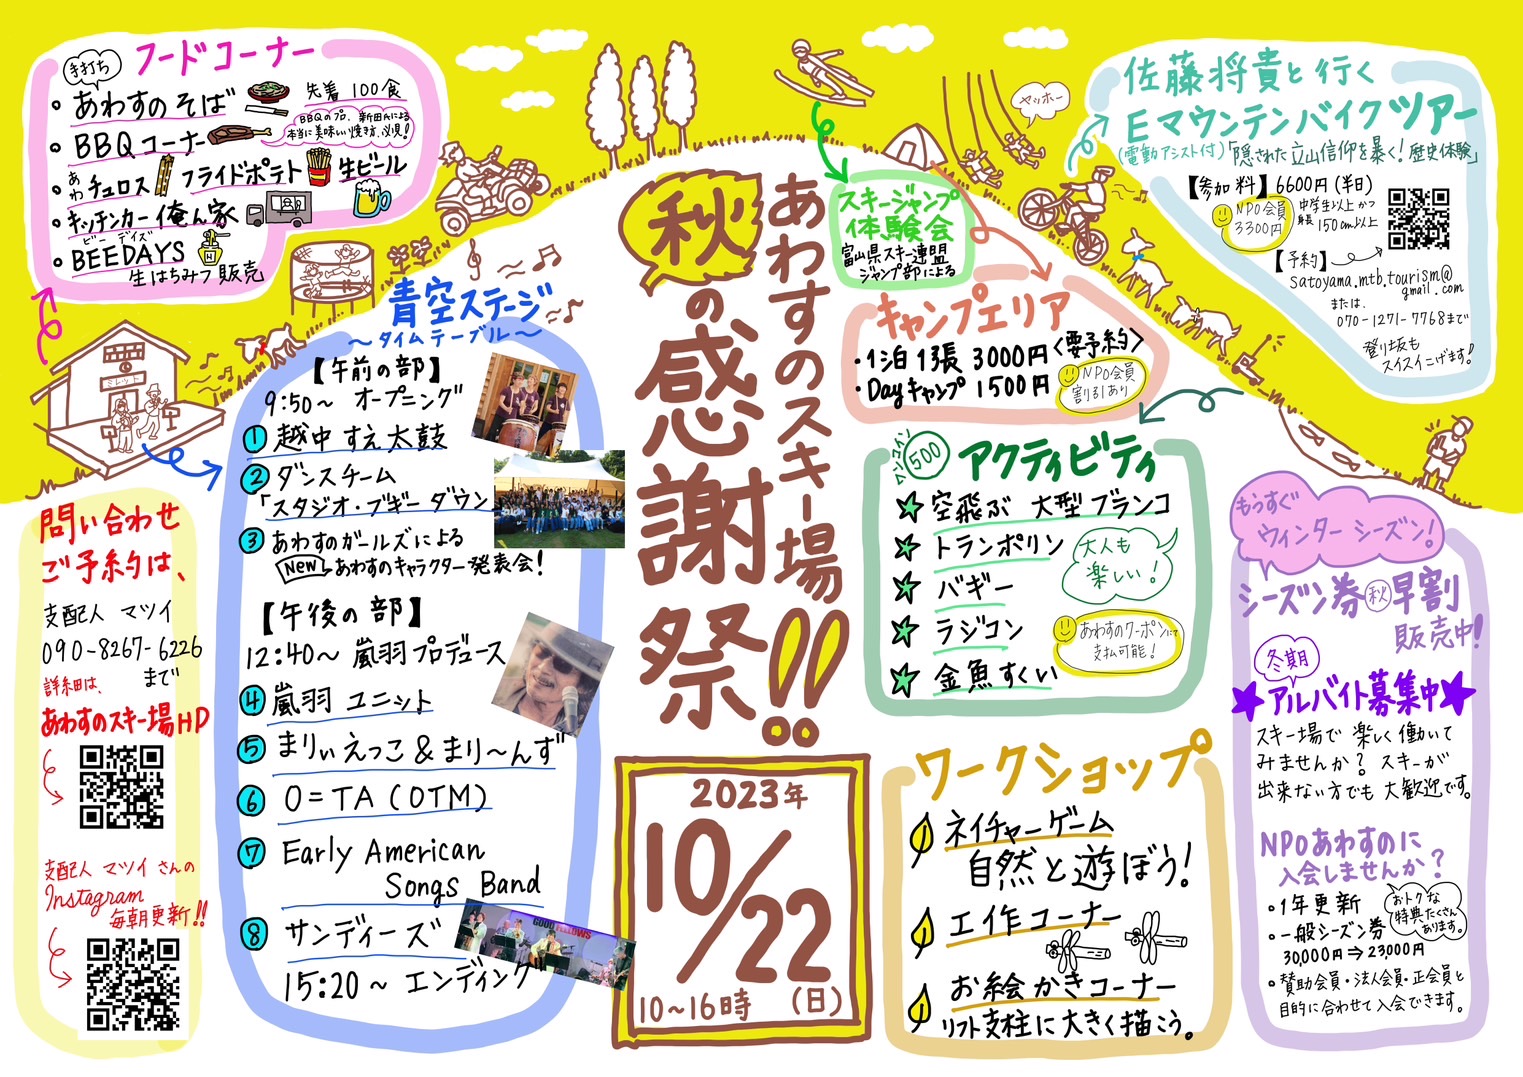 あわすのスキー場
秋の感謝祭!!
2023年
10/22
10~16時 (日)
フードコーナー
手打ち
・あわすのそば 先着100食
・BBQコーナー
BBQのプロ、新田氏による
本当に美味しい焼き方、必見!
・あわチュロス フライドポテト 生ビール
・キッチンカー 俺ん家
ビーデイズ
・BEEDAYS
生はちみつ販売
青空ステージ
~タイムテーブル~
【午前の部】
9:50~ オープニング
① 越中すえ太鼓
② ダンスチーム
「スタジオ・ブギーダウン
③ あわすのガールズによる
New あわすのキャラクター発表会!
【午後の部】
12:40~ 嵐羽プロデュース
④ 嵐羽ユニット
⑤ まりぃえっこ&まり~んず
⑥ O=TA(OTM)
⑦ Early American
Songs Band
⑧ サンディーズ
15:20~ エンディング
GOOD FELLOWS
問い合わせ
ご予約は、
支配人 マツイ
090-8267-6226
まで
詳細は、
あわすのスキー場HP
支配人 マツイさんの
Instagram
毎朝更新!!
スキージャンプ
体験会
富山県スキー連盟
ジャンプ部による
ヤッホー
キャンプエリア
・1泊1張 3000円〈要予約〉
・Dayキャンプ 1500円
NPO会員
割引あり
佐藤将貴と行く
Eマウンテンバイクツアー
(電動アシスト付)「隠された立山信仰を暴く!歴史体験」
【参加料】6600円(半日)
NPO会員
3300円
中学生以上かつ
身長150cm以上
【予約】
satoyama.mtb.tourism@
gmail.com
または、
070-1271-7768まで
登り坂も
スイスイこげます!
ワンコイン
500
アクティビティ
★ 空飛ぶ 大型ブランコ
★ トランポリン
★ バギー
★ ラジコン
★ 金魚すくい
大人も
楽しい!
あわすのクーポンにて
支払可能!
ワークショップ
ネイチャーゲーム
自然と遊ぼう!
工作コーナー
お絵かきコーナー
リフト支柱に大きく描こう。
もうすぐ
ウィンターシーズン!
シーズン券㊙早割
販売中!
冬期
★アルバイト募集中★
スキー場で楽しく働いて
みませんか?スキーが
出来ない方でも大歓迎です。
NPOあわすのに
入会しませんか?
・1年更新
・一般シーズン券
30,000円⇒23,000円
おトクな
特典たくさん
あります。
・賛助会員・法人会員・正会員と
目的に合わせて入会できます。
ミレット